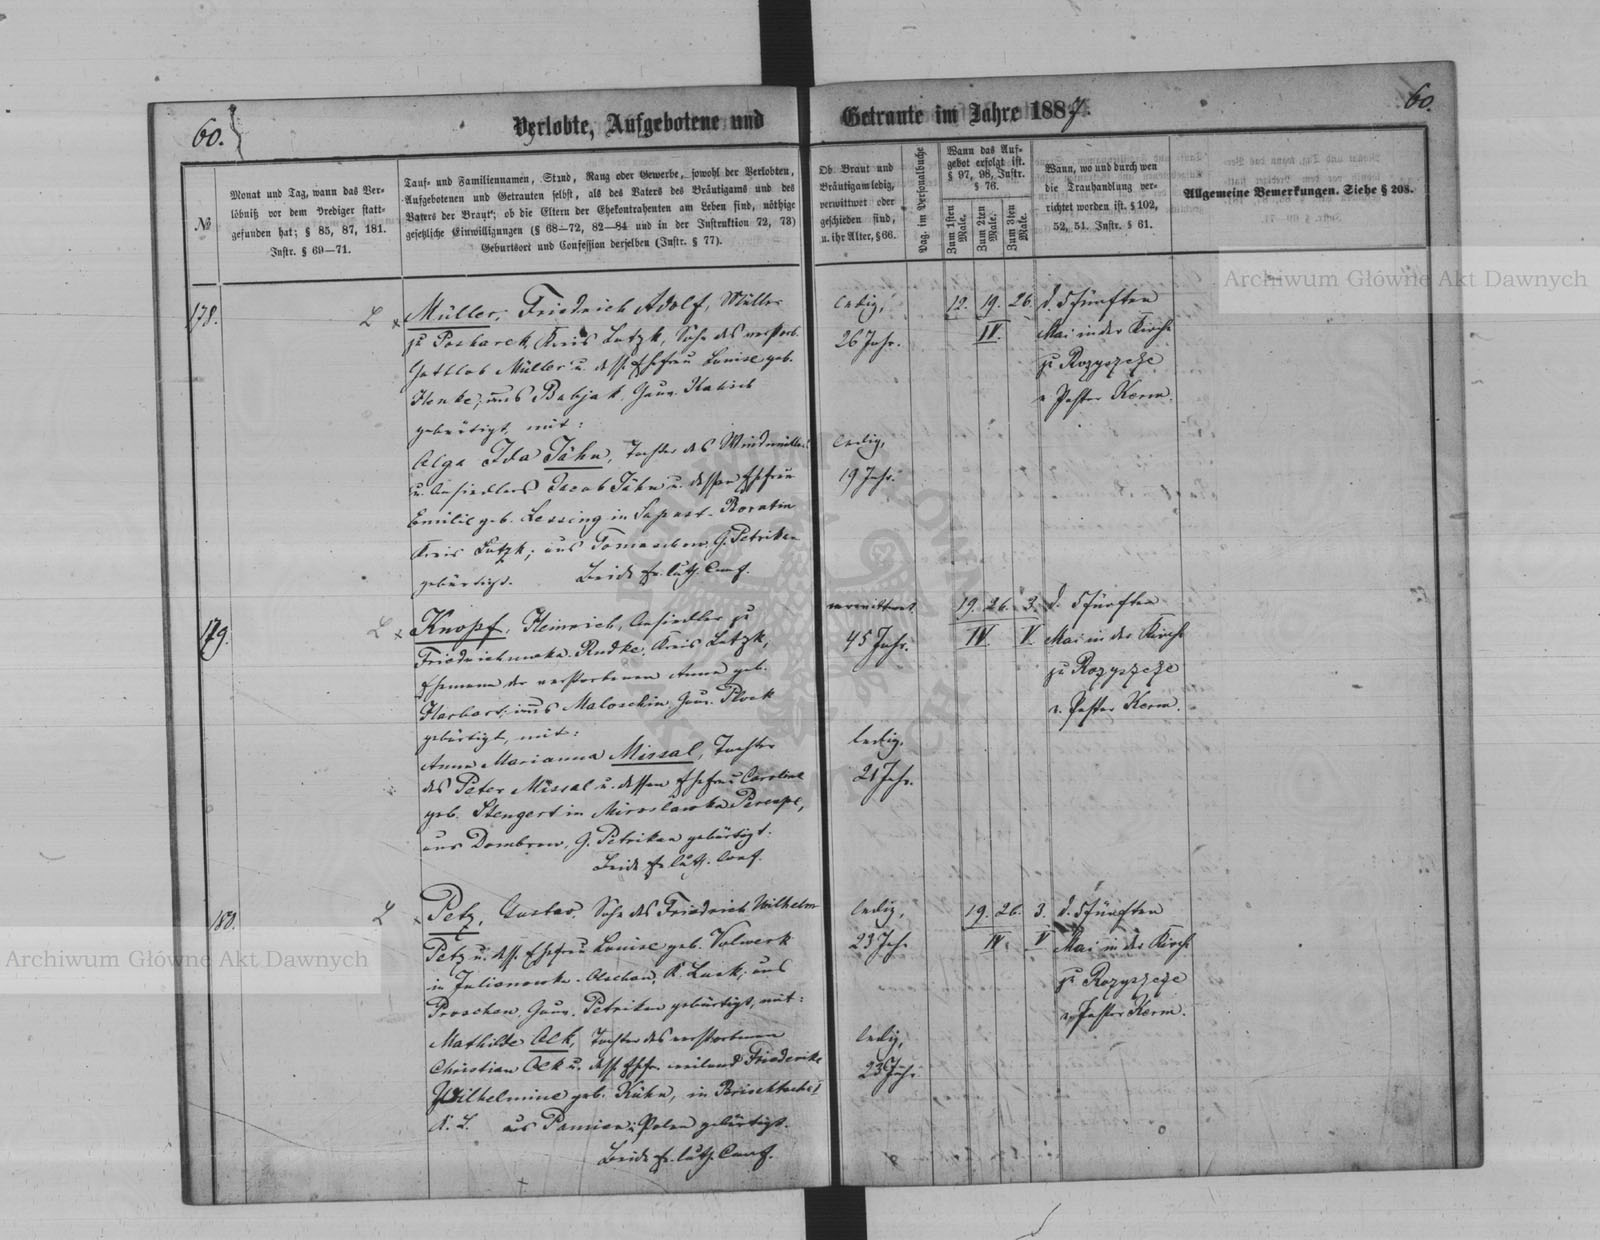 60.
Verlobte, Aufgebotene und
Getraute im Jahre 1887.
60.
№
Monat und Tag, wann das Ver-
löbniß vor dem Prediger statt-
gefunden hat; § 85, 87, 181.
Instr. § 69—71.
Tauf- und Familiennamen, Stand, Rang oder Gewerbe, sowohl der Verlobten,
Aufgebotenen und Getrauten selbst, als des Vaters des Bräutigams und des
Vaters der Braut; ob die Eltern der Ehekontrahenten am Leben sind, nöthige
gesetzliche Einwilligungen (§ 68—72, 82—84 und in der Instruktion 72, 73)
Geburtsort und Confession derselben (Instr. § 77).
Ob Braut und
Bräutigam ledig,
verwittwet oder
geschieden sind,
u. ihr Alter, § 66.
Pag. im Personalbuche
Wann das Auf-
gebot erfolgt ist.
§ 97, 98, Instr.
§ 76.
Zum 1sten Male.
Zum 2ten Male.
Zum 3ten Male.
Wann, wo und durch wen
die Trauhandlung ver-
richtet worden ist. § 102,
52, 51. Instr. § 61.
Allgemeine Bemerkungen. Siehe § 208.
Archiwum Główne Akt Dawnych
178.
L x Müller, Friedrich Adolf, Müller
zu Posharck, Kreis Lutzk, Sohn des verstorb.
Gottlob Müller u. dess. Ehefrau Louise geb.
Henke, aus Babjak, Gouv. Kalisch
gebürtigt, mit:
Olga Ida Jähn, Tochter des Windmüllers
u. Ansiedlers Jacob Jähn u. dessen Ehefrau
Emilie geb. Lessing in Sapust-Boratin
Kreis Lutzk, aus Tomaschow, G. Petrikau
gebürtigt. Beide ev. luth. Conf.
ledig,
26 Jahr.
ledig,
19 Jahr.
12. 19. 26.
IV.
d. 5 fünften
Mai in der Kirche
zu Rozyszcze
v. Pastor Kerm.
179.
L x Knopf, Heinrich, Ansiedler zu
Friedrichuwka-Rudke, Kreis Lutzk,
Ehemann der verstorbenen Anna geb.
Harbart, aus Maloschin, Gouv. Plock
gebürtigt, mit:
Anna Marianna Missal, Tochter
des Peter Missal u. dessen Ehefrau Caroline
geb. Stengert in Miroslawka Perespe,
aus Dombrow, G. Petrikau gebürtigt.
Beide ev. luth. Conf.
verwittwet
45 Jahr.
ledig,
21 Jahr.
19. 26. 3.
IV. V.
d. 5 fünften
Mai in der Kirche
zu Rozyszcze
v. Pastor Kerm.
180.
L x Petz, Gustav, Sohn des Friedrich Wilhelm
Petz u. dess. Ehefrau Louise geb. Volwerk
in Julianowka-Olschan, K. Luck, aus
Proschen, Gouv. Petrikau gebürtigt, mit:
Mathilde Ock, Tochter des verstorbenen
Christian Ock u. dess. Ehefr. weiland Friederike
Wilhelmine geb. Kühn, in Brischtsche I
K. L. aus Pamien, Polen gebürtigt.
Beide ev. luth. Conf.
ledig,
23 Jahr.
ledig,
23 Jahr.
19. 26. 3.
IV. V
d. 5 fünften
Mai in der Kirche
zu Rozyszcze
v. Pastor Kerm.
Archiwum Główne Akt Dawnych